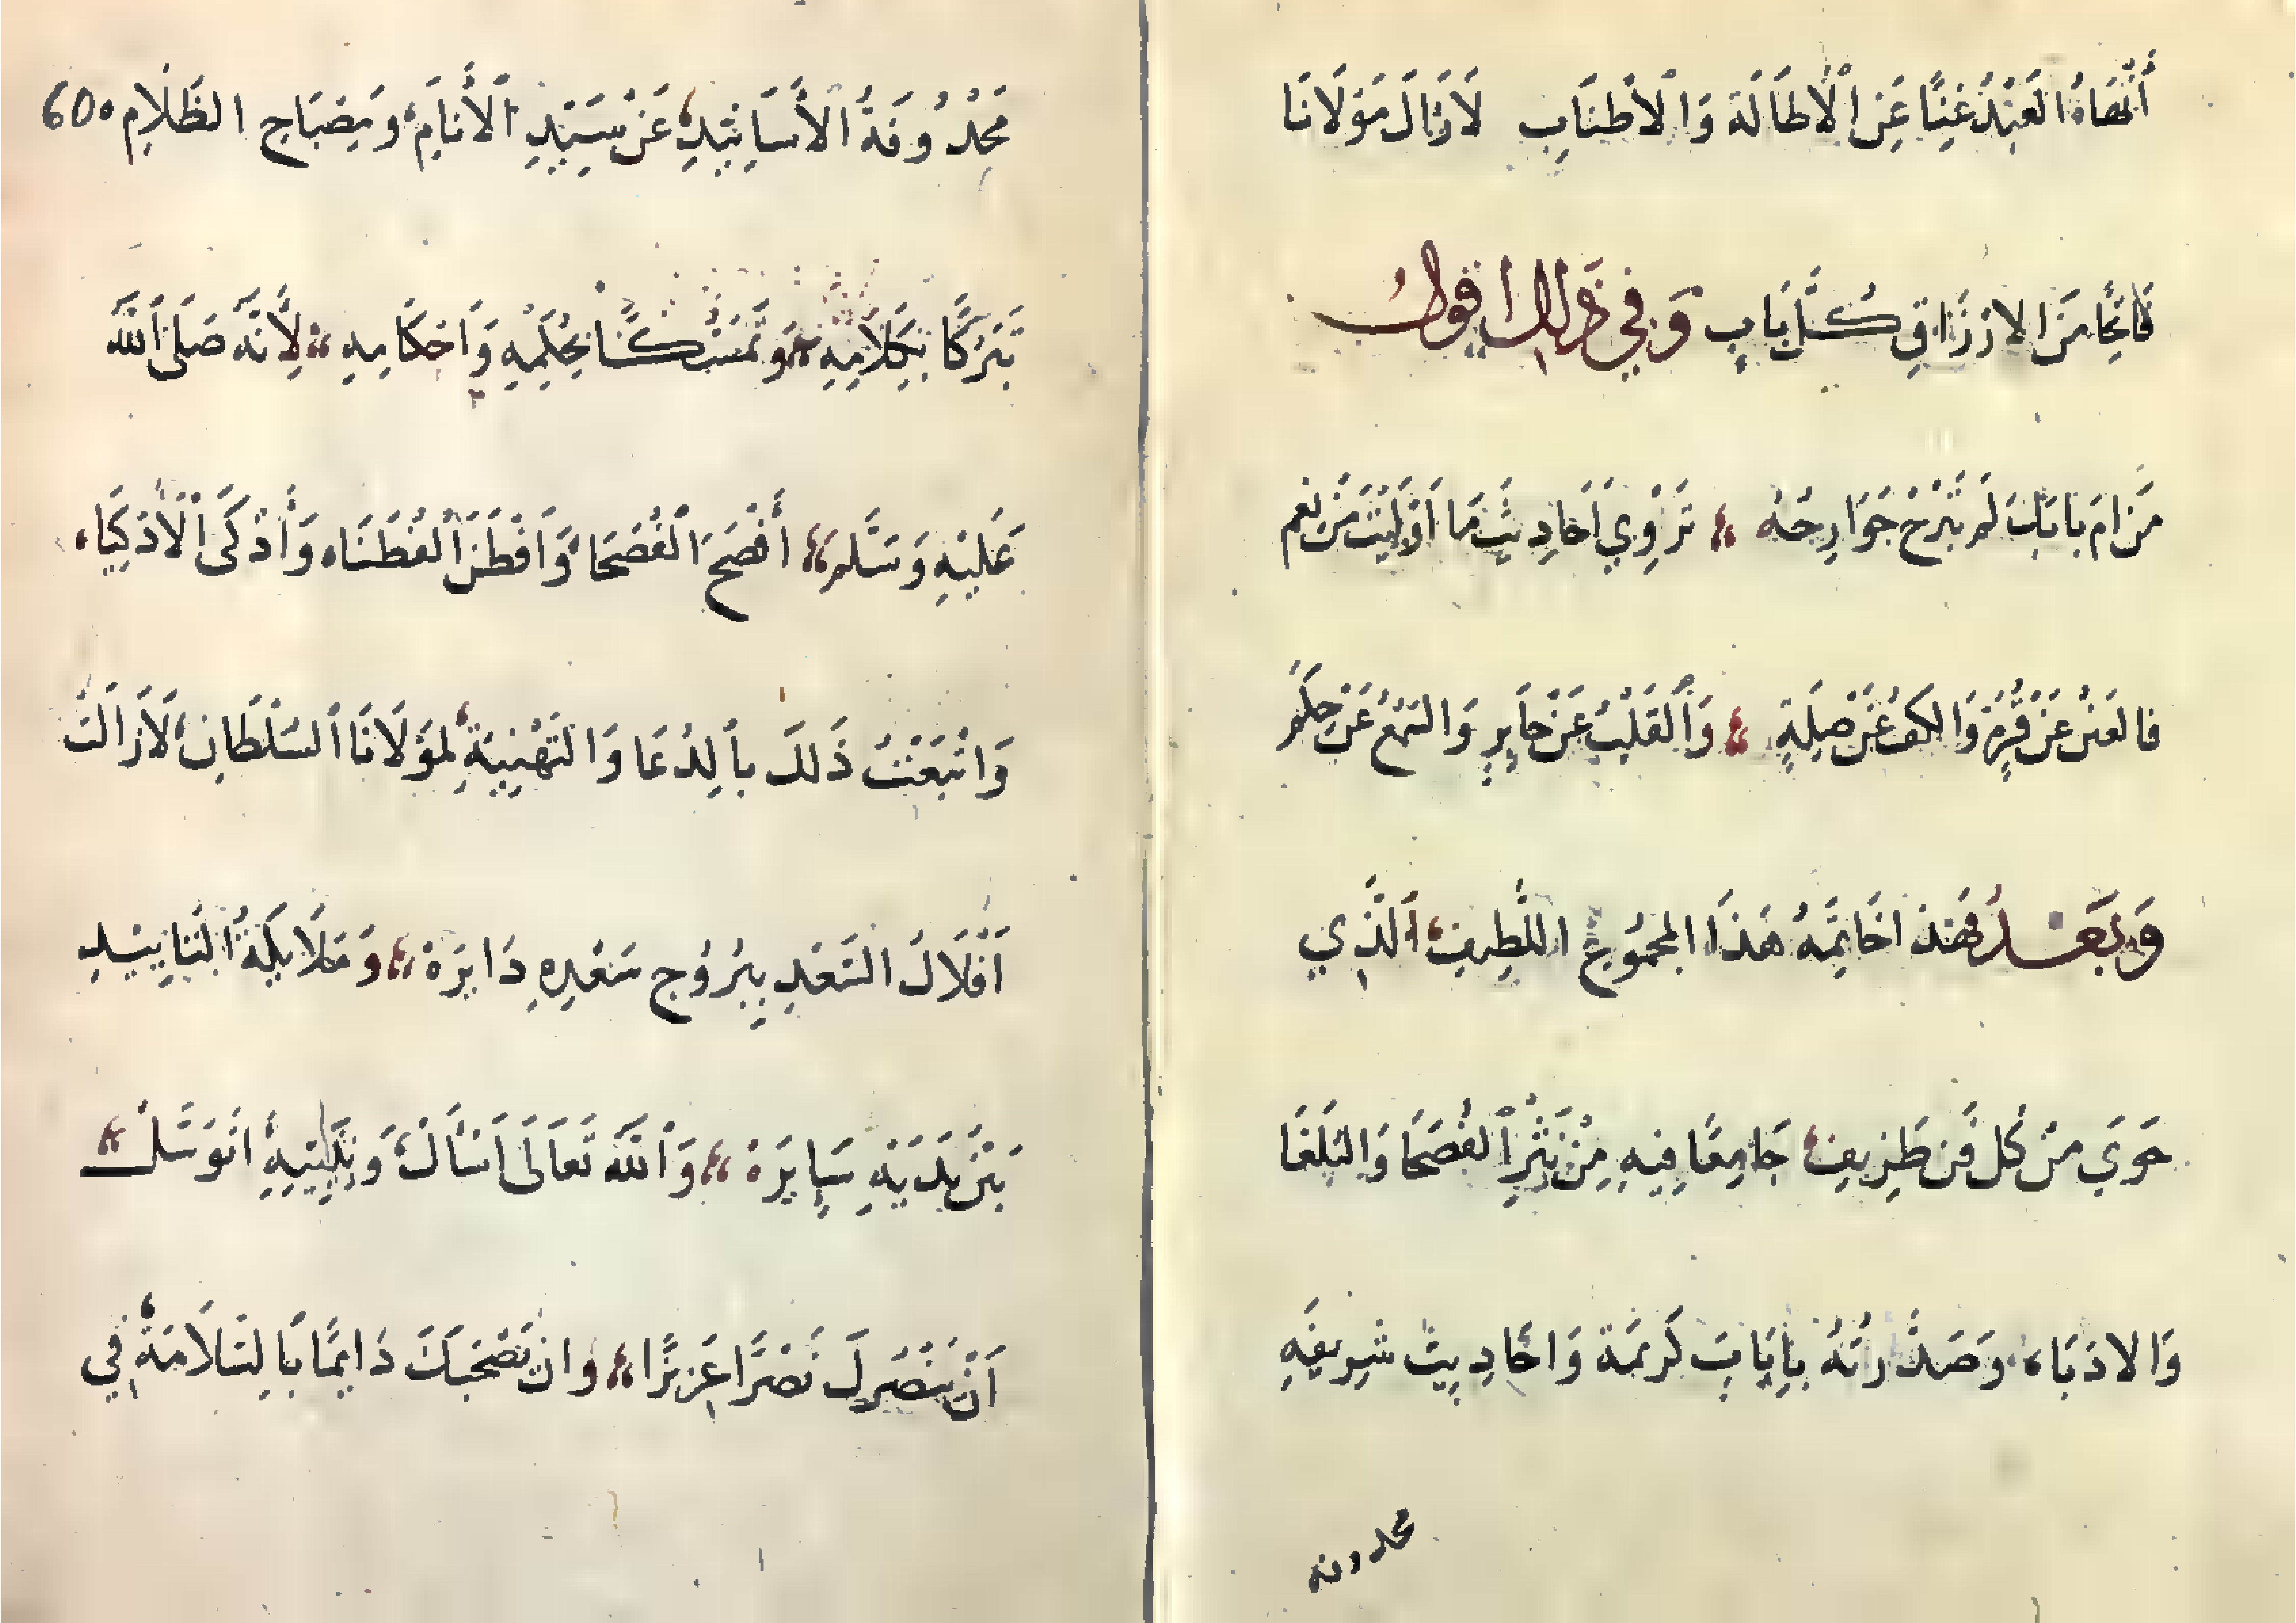 أنهاه العبد غنيا عن الاطالة والاطناب لا زال مولانا
فاتحا من الارزاق كل باب وفي ذلك اقول
من ام بابك لم تبرح جوارحه تروي احاديث ما اوليت من نعم
فالعين عن قرة والكف عن صلة والقلب عن جابر والسمع عن حكم
وبعد فهذا خاتمة هذا المجموع اللطيف الذي
حوي من كل فن ظريف جامعا فيه من نثر الفصحا والبلغا
والادباء وصدرته بايات كريمة واحاديث شريفه
محدوفه
محدوفة الأسانيد عن سيد الأنام ومصباح الظلام 60
تبركا بكلامه وتمسكا بحكمه واحكامه لأنه صلى الله
عليه وسلم أفصح الفصحا وافطن الفطناء وأذكى الاذكياء
واتبعت ذلك بالدعا والتهنية لمولانا السلطان لا زالت
افلاك السعد ببروج سعده دايرة وملايكة التاييد
بين يديه سايرة والله تعالى اسأل وبنبيه اتوسل
ان ينصرك نصرا عزيزا وان تصحبك دايما بالسلامة في